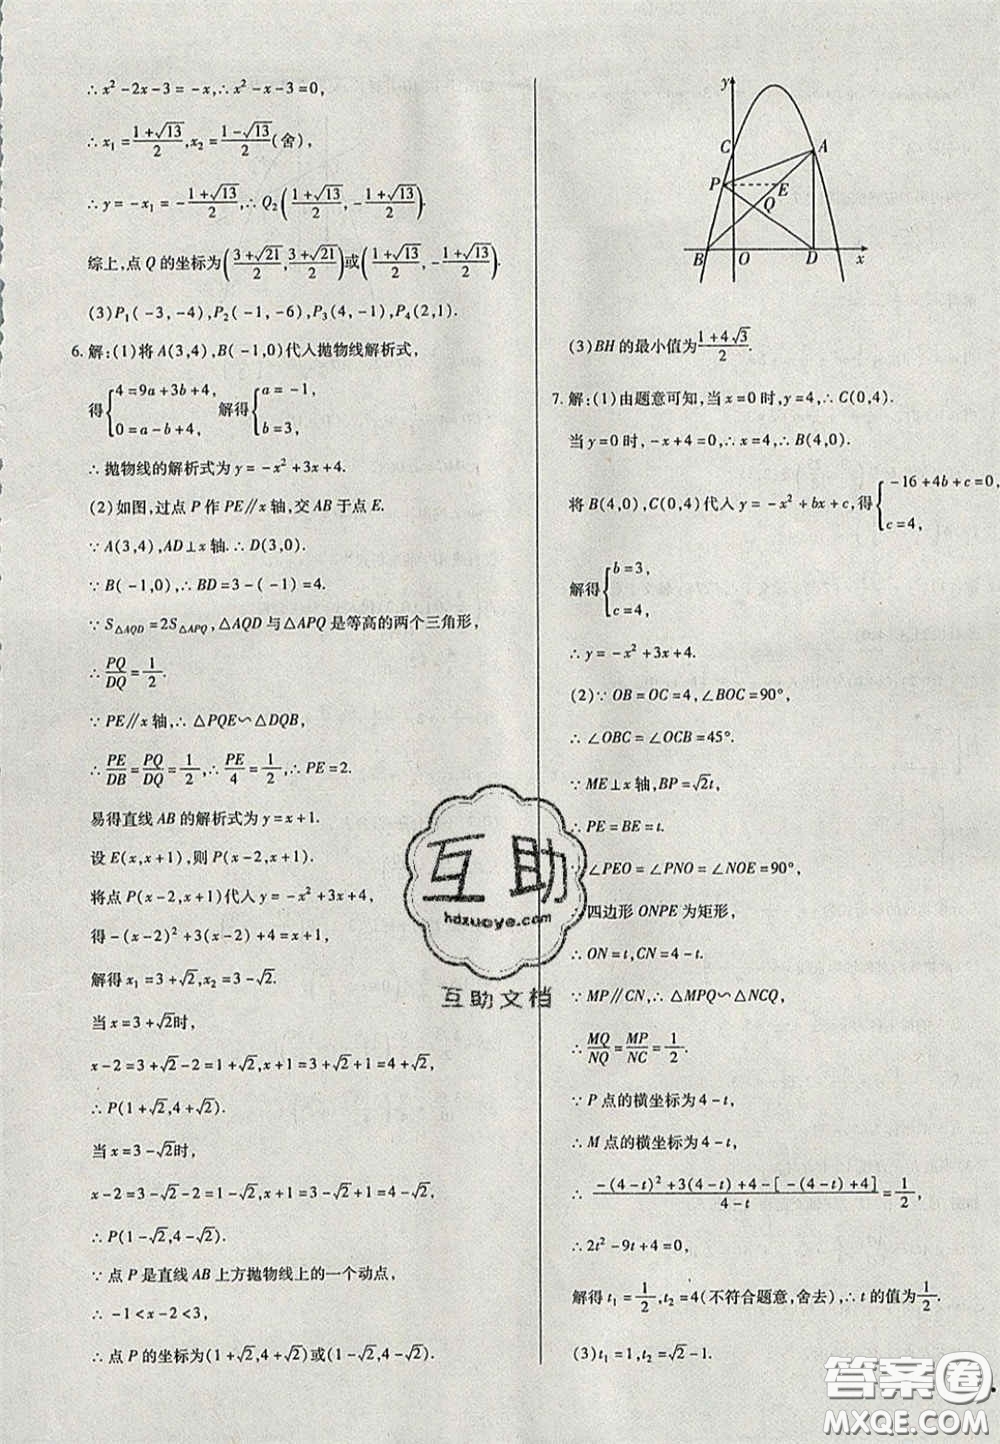 ∴x²-2x-3=-x,∴x²-x-3=0,
∴x₁=(1+√13)/2,x₂=(1-√13)/2(舍),
∴y=-x₁=-(1+√13)/2,∴Q₂((1+√13)/2,-(1+√13)/2).
综上,点Q的坐标为((3+√21)/2,(3+√21)/2)或((1+√13)/2,-(1+√13)/2).
(3)P₁(-3,-4),P₂(-1,-6),P₃(1,-4),P₄(2,1).
6.解:(1)将A(3,4),B(-1,0)代入抛物线解析式,
得{4=9a+3b+4, 0=a-b+4, 解得{a=-1, b=3,
∴抛物线的解析式为y=-x²+3x+4.
(2)如图,过点P作PE∥x轴,交AB于点E.
∵A(3,4),AD⊥x轴.∴D(3,0).
∵B(-1,0),∴BD=3-(-1)=4.
∵S△AQD=2S△APQ,△AQD与△APQ是等高的两个三角形,
∴PQ/DQ=1/2.
∵PE∥x轴,∴△PQE∽△DQB,
∴PE/DB=PQ/DQ=1/2,∴PE/4=1/2,∴PE=2.
易得直线AB的解析式为y=x+1.
设E(x,x+1),则P(x-2,x+1).
将点P(x-2,x+1)代入y=-x²+3x+4,
得-(x-2)²+3(x-2)+4=x+1,
解得x₁=3+√2,x₂=3-√2.
当x=3+√2时,
x-2=3+√2-2=1+√2,x+1=3+√2+1=4+√2,
∴P(1+√2,4+√2).
当x=3-√2时,
x-2=3-√2-2=1-√2,x+1=3-√2+1=4-√2,
∴P(1-√2,4-√2).
∵点P是直线AB上方抛物线上的一个动点,
∴-1<x-2<3,
∴点P的坐标为(1+√2,4+√2)或(1-√2,4-√2).
y
C
A
P
E
Q
B
O
D
x
(3)BH的最小值为(1+4√3)/2.
7.解:(1)由题意可知,当x=0时,y=4,∴C(0,4).
当y=0时,-x+4=0,∴x=4,∴B(4,0).
将B(4,0),C(0,4)代入y=-x²+bx+c,得{-16+4b+c=0, c=4,
解得{b=3, c=4,
∴y=-x²+3x+4.
(2)∵OB=OC=4,∠BOC=90°,
∴∠OBC=∠OCB=45°.
∵ME⊥x轴,BP=√2t,
∴PE=BE=t.
∠PEO=∠PNO=∠NOE=90°,
四边形ONPE为矩形,
∴ON=t,CN=4-t.
∵MP∥CN,∴△MPQ∽△NCQ,
∴MQ/NQ=MP/NC=1/2.
∵P点的横坐标为4-t,
∴M点的横坐标为4-t,
∴(-(4-t)²+3(4-t)+4-[-(4-t)+4])/(4-t)=1/2,
∴2t²-9t+4=0,
解得t₁=1/2,t₂=4(不符合题意,舍去),∴t的值为1/2.
(3)t₁=1,t₂=√2-1.
互助
hdzuoye.com
互助文档
答案圈
MXQE.COM